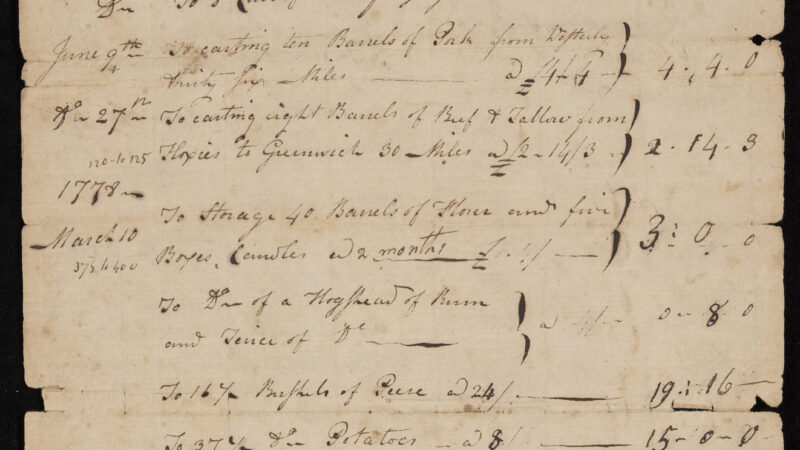 Do
June 9th To carting ten Barrels of Pork from Westerly
thirty six Miles a £4"4 4. 4. 0
Do 27th To carting eight Barrels of Beef & Tallow from
120 to 125 Hoxies to Greenwich 30 Miles a £2-14/3 2. 14. 3
1778
March 10 To Storage 40 Barrels of Flour and five
375 to 400 Boxes Candles a 2 months £ 3: 0 0
To Do of a Hogshead of Rum
and Teirce of Do a 4/- 0 8 0
To 16½ Bushels of Pease a 24/ 19: 16
To 37½ Do Potatoes a 8/ 15-0-0